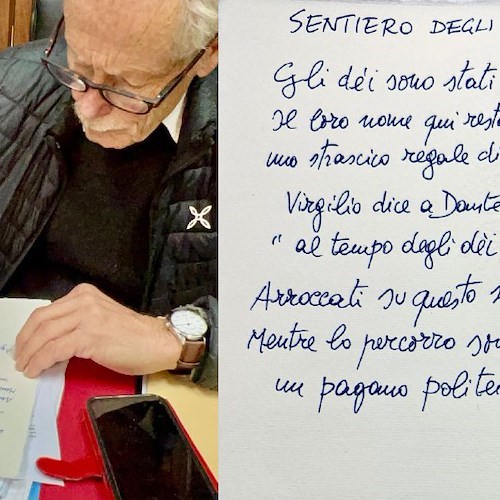 SENTIERO DEGLI
Gli dèi sono stati
Il loro nome qui resta
uno strascico regale di
Virgilio dice a Dante
" al tempo degli dèi
Arroccati su questo s
Mentre lo percorro son
un pagano polite